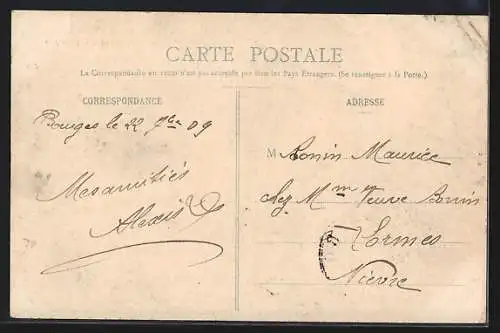 CARTE POSTALE
La Correspondance au recto n'est pas acceptée par tous les Pays Étrangers. (Se renseigner à la Poste.)
CORRESPONDANCE
le 22 7bre 09
Mes amitiés
Alexis
ADRESSE
M Bonin Maurice
chez Mme Veuve Bonin
Nièvre